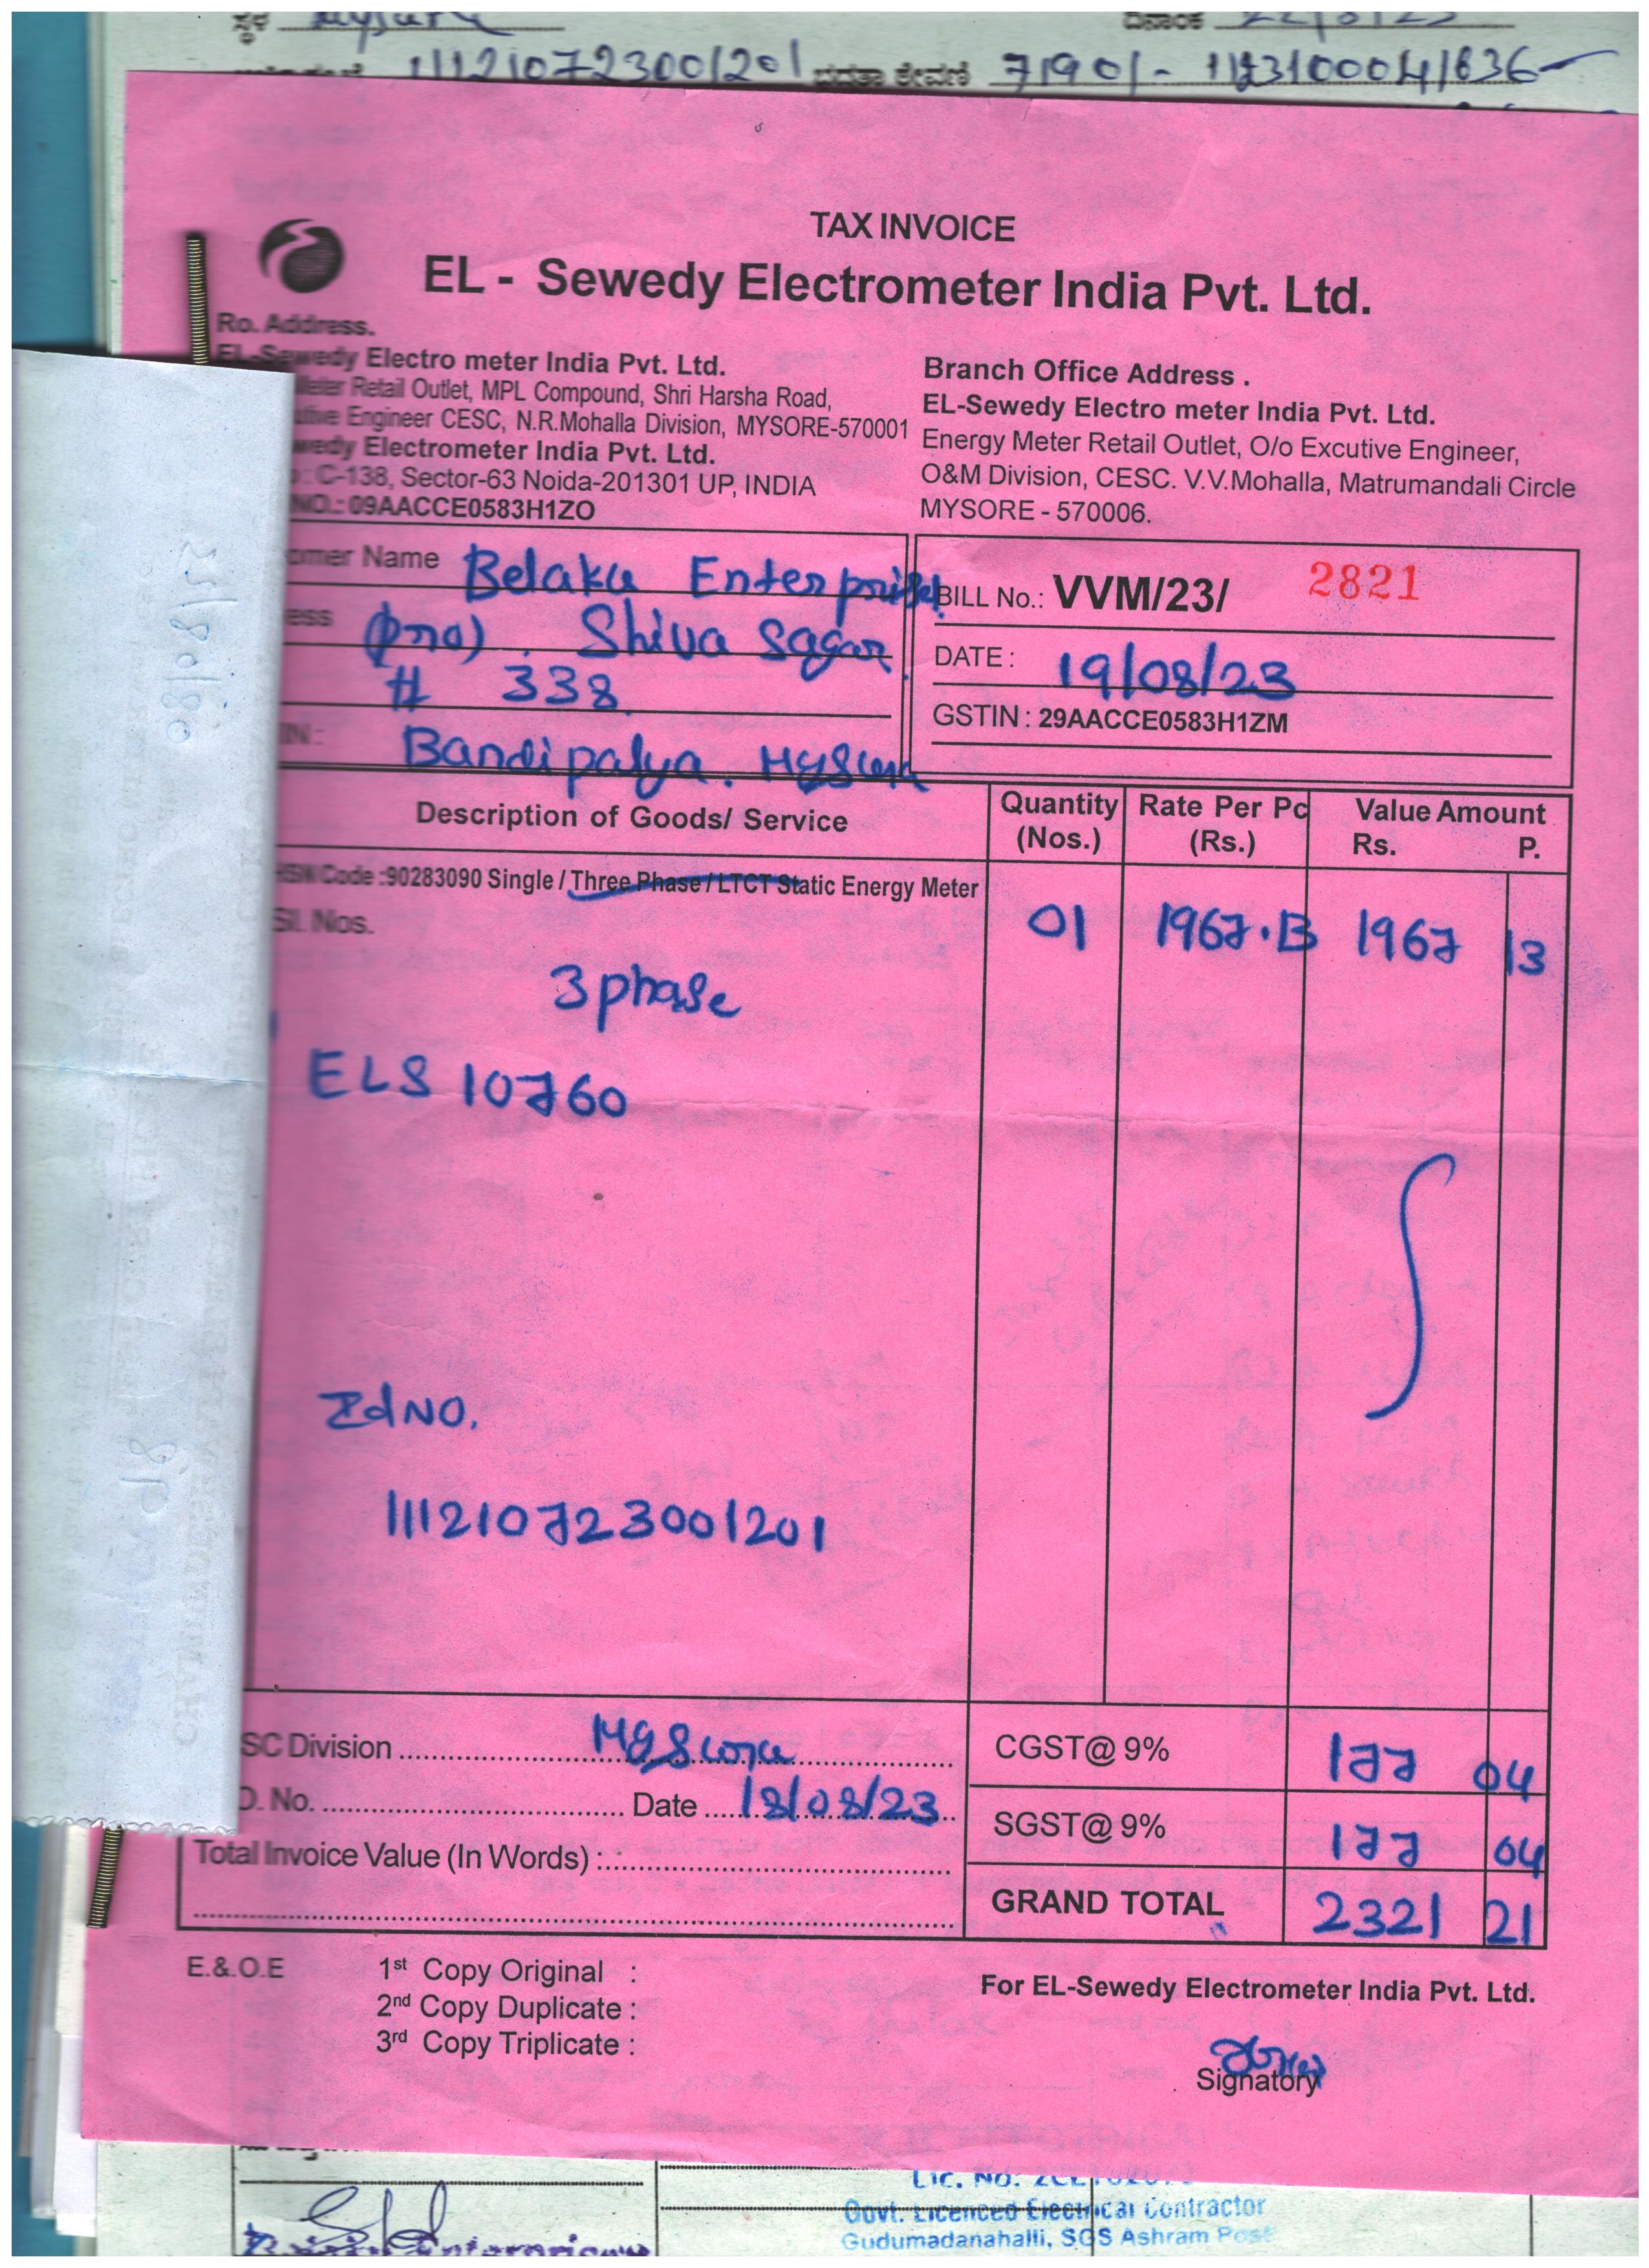 ಸ್ಥಳ Mysuru ದಿನಾಂಕ 22/8/23
111210723001201 7190/- 1123100041636
TAX INVOICE
EL - Sewedy Electrometer India Pvt. Ltd.
Ro. Address.
EL-Sewedy Electro meter India Pvt. Ltd.
Meter Retail Outlet, MPL Compound, Shri Harsha Road,
utive Engineer CESC, N.R.Mohalla Division, MYSORE-570001
wedy Electrometer India Pvt. Ltd.
: C-138, Sector-63 Noida-201301 UP, INDIA
NO.: 09AACCE0583H1ZO
Branch Office Address .
EL-Sewedy Electro meter India Pvt. Ltd.
Energy Meter Retail Outlet, O/o Excutive Engineer,
O&M Division, CESC. V.V.Mohalla, Matrumandali Circle
MYSORE - 570006.
omer Name Belaku Enterprises
ess (pro) . Shiva Sagar
# 338
IN : Bandipalya. Mysuru
BILL No.: VVM/23/ 2821
DATE : 19/08/23
GSTIN : 29AACCE0583H1ZM
Description of Goods/ Service Quantity (Nos.) Rate Per Pc (Rs.) Value Amount Rs. P.
HSN Code :90283090 Single / Three Phase / LTCT Static Energy Meter
Sl. Nos. 01 1967.13 1967 13
3 phase
ELS 10760
Id NO.
111210723001201
SC Division Mysuru CGST@ 9% 177 04
O. No. Date 18/08/23 SGST@ 9% 177 04
Total Invoice Value (In Words) :
GRAND TOTAL 2321 21
E.&.O.E 1st Copy Original :
2nd Copy Duplicate :
3rd Copy Triplicate :
For EL-Sewedy Electrometer India Pvt. Ltd.
Signatory
Lic. No.
Govt. Licenced Electrical Contractor
Gudumadanahalli, SGS Ashram Post